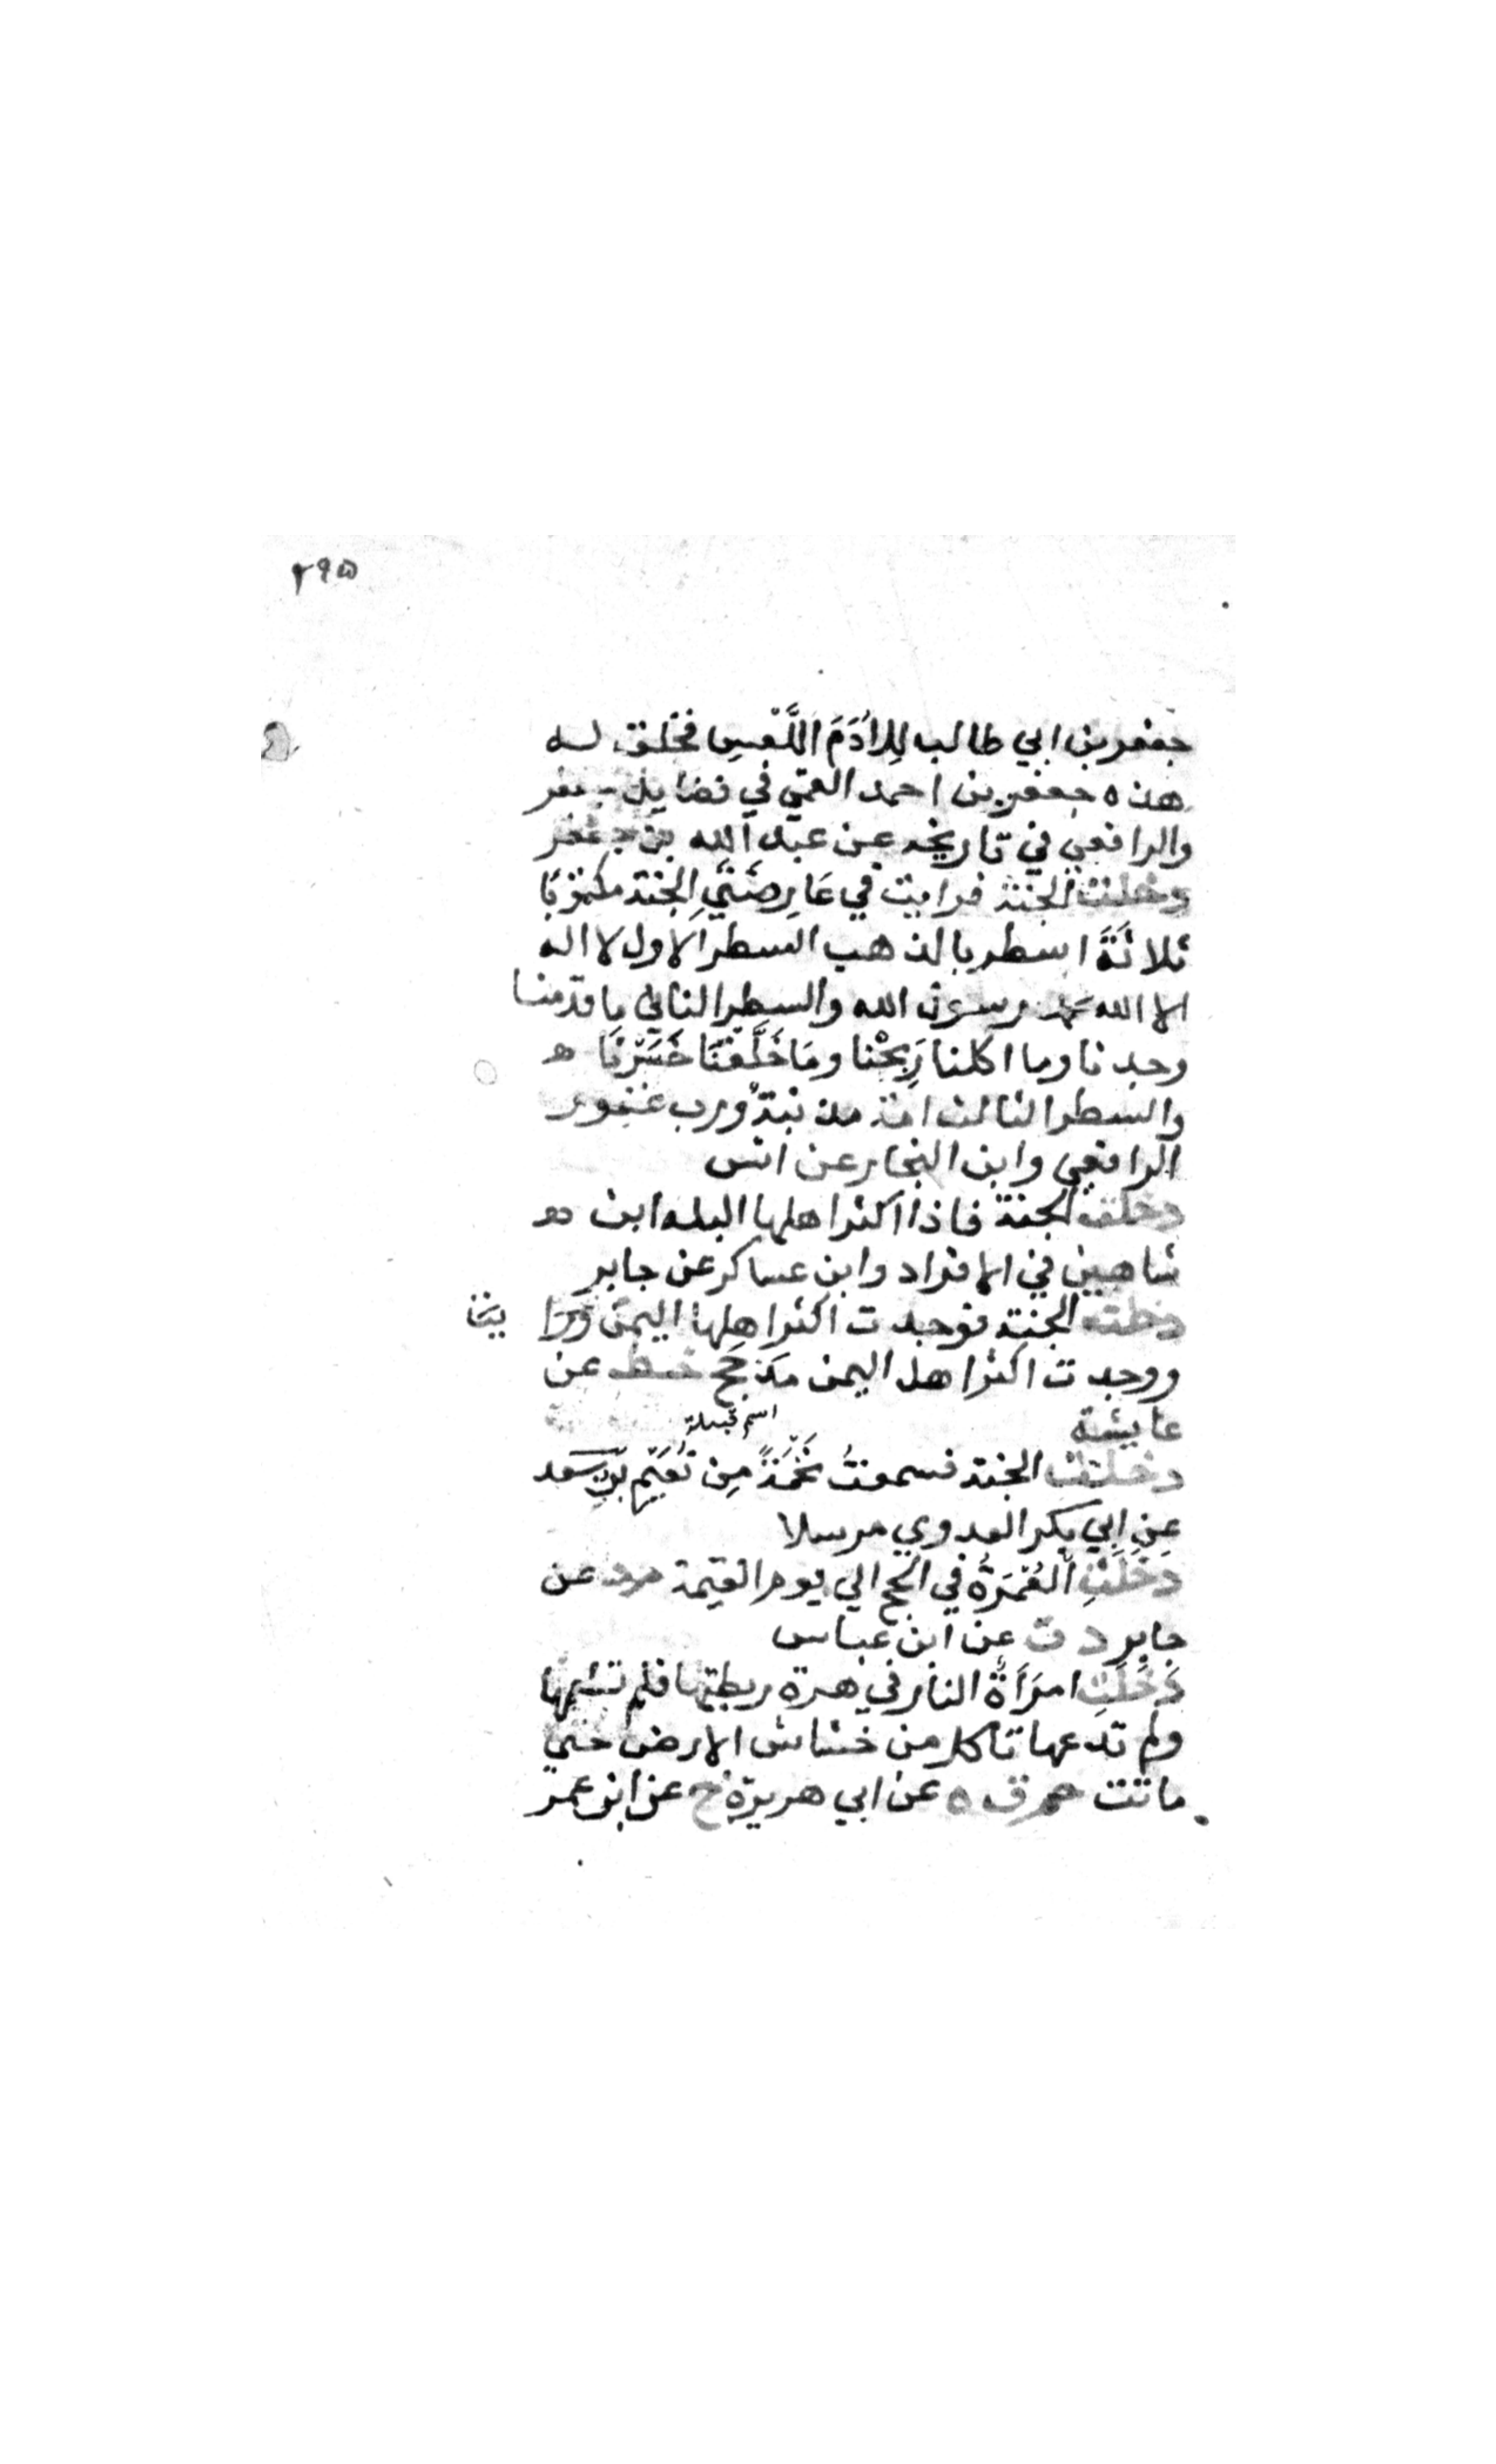 ٢٩٥
جعفر بن ابي طالب لِلاُدَمَ اللُّعْسِ فخلق له
هذه جعفر بن احمد القمي في فضايل جعفر
والرافعي في تاريخه عن عبد الله بن جعفر
دخلت الجنة فرايت في عَارِضَتَيِ الجنة مكتوبًا
ثلاثَةً اسطر بالذهب السطر الاول لا اله
الا الله محمد رسول الله والسطر الثاني ما قدمنا
وجدنا وما اكلنا رَبِحْنا ومَا خَلَّفْنَا خَسَرْنَا
والسطر الثالث امة مذنبة ورب غفور
الرافعي وابن النجار عن انس
دخلت الجنة فاذا اكثر اهلها البله ابن
شاهين في الافراد وابن عساكر عن جابر
دخلت الجنة فوجدت اكثر اهلها اليمن
ووجدت اكثر اهل اليمن مَذحَج خط عن
عايشة
اسم قبيلة
دخلت الجنة فسمعتُ نَحْمَةً مِن نُعَيْم بن سعد
عن ابي بكر العدوي مرسلا
دَخَلَتِ العُمْرَةُ في الحج الي يوم القيمة م د عن
جابر د ت عن ابن عباس
دَخَلَتِ امرَأَةٌ النار في هرة ربطتها فلم تطعمها
ولم تدعها تاكل من خشاش الارض حتي
ماتت حم ق ه عن ابي هريرة خ عن ابن عمر